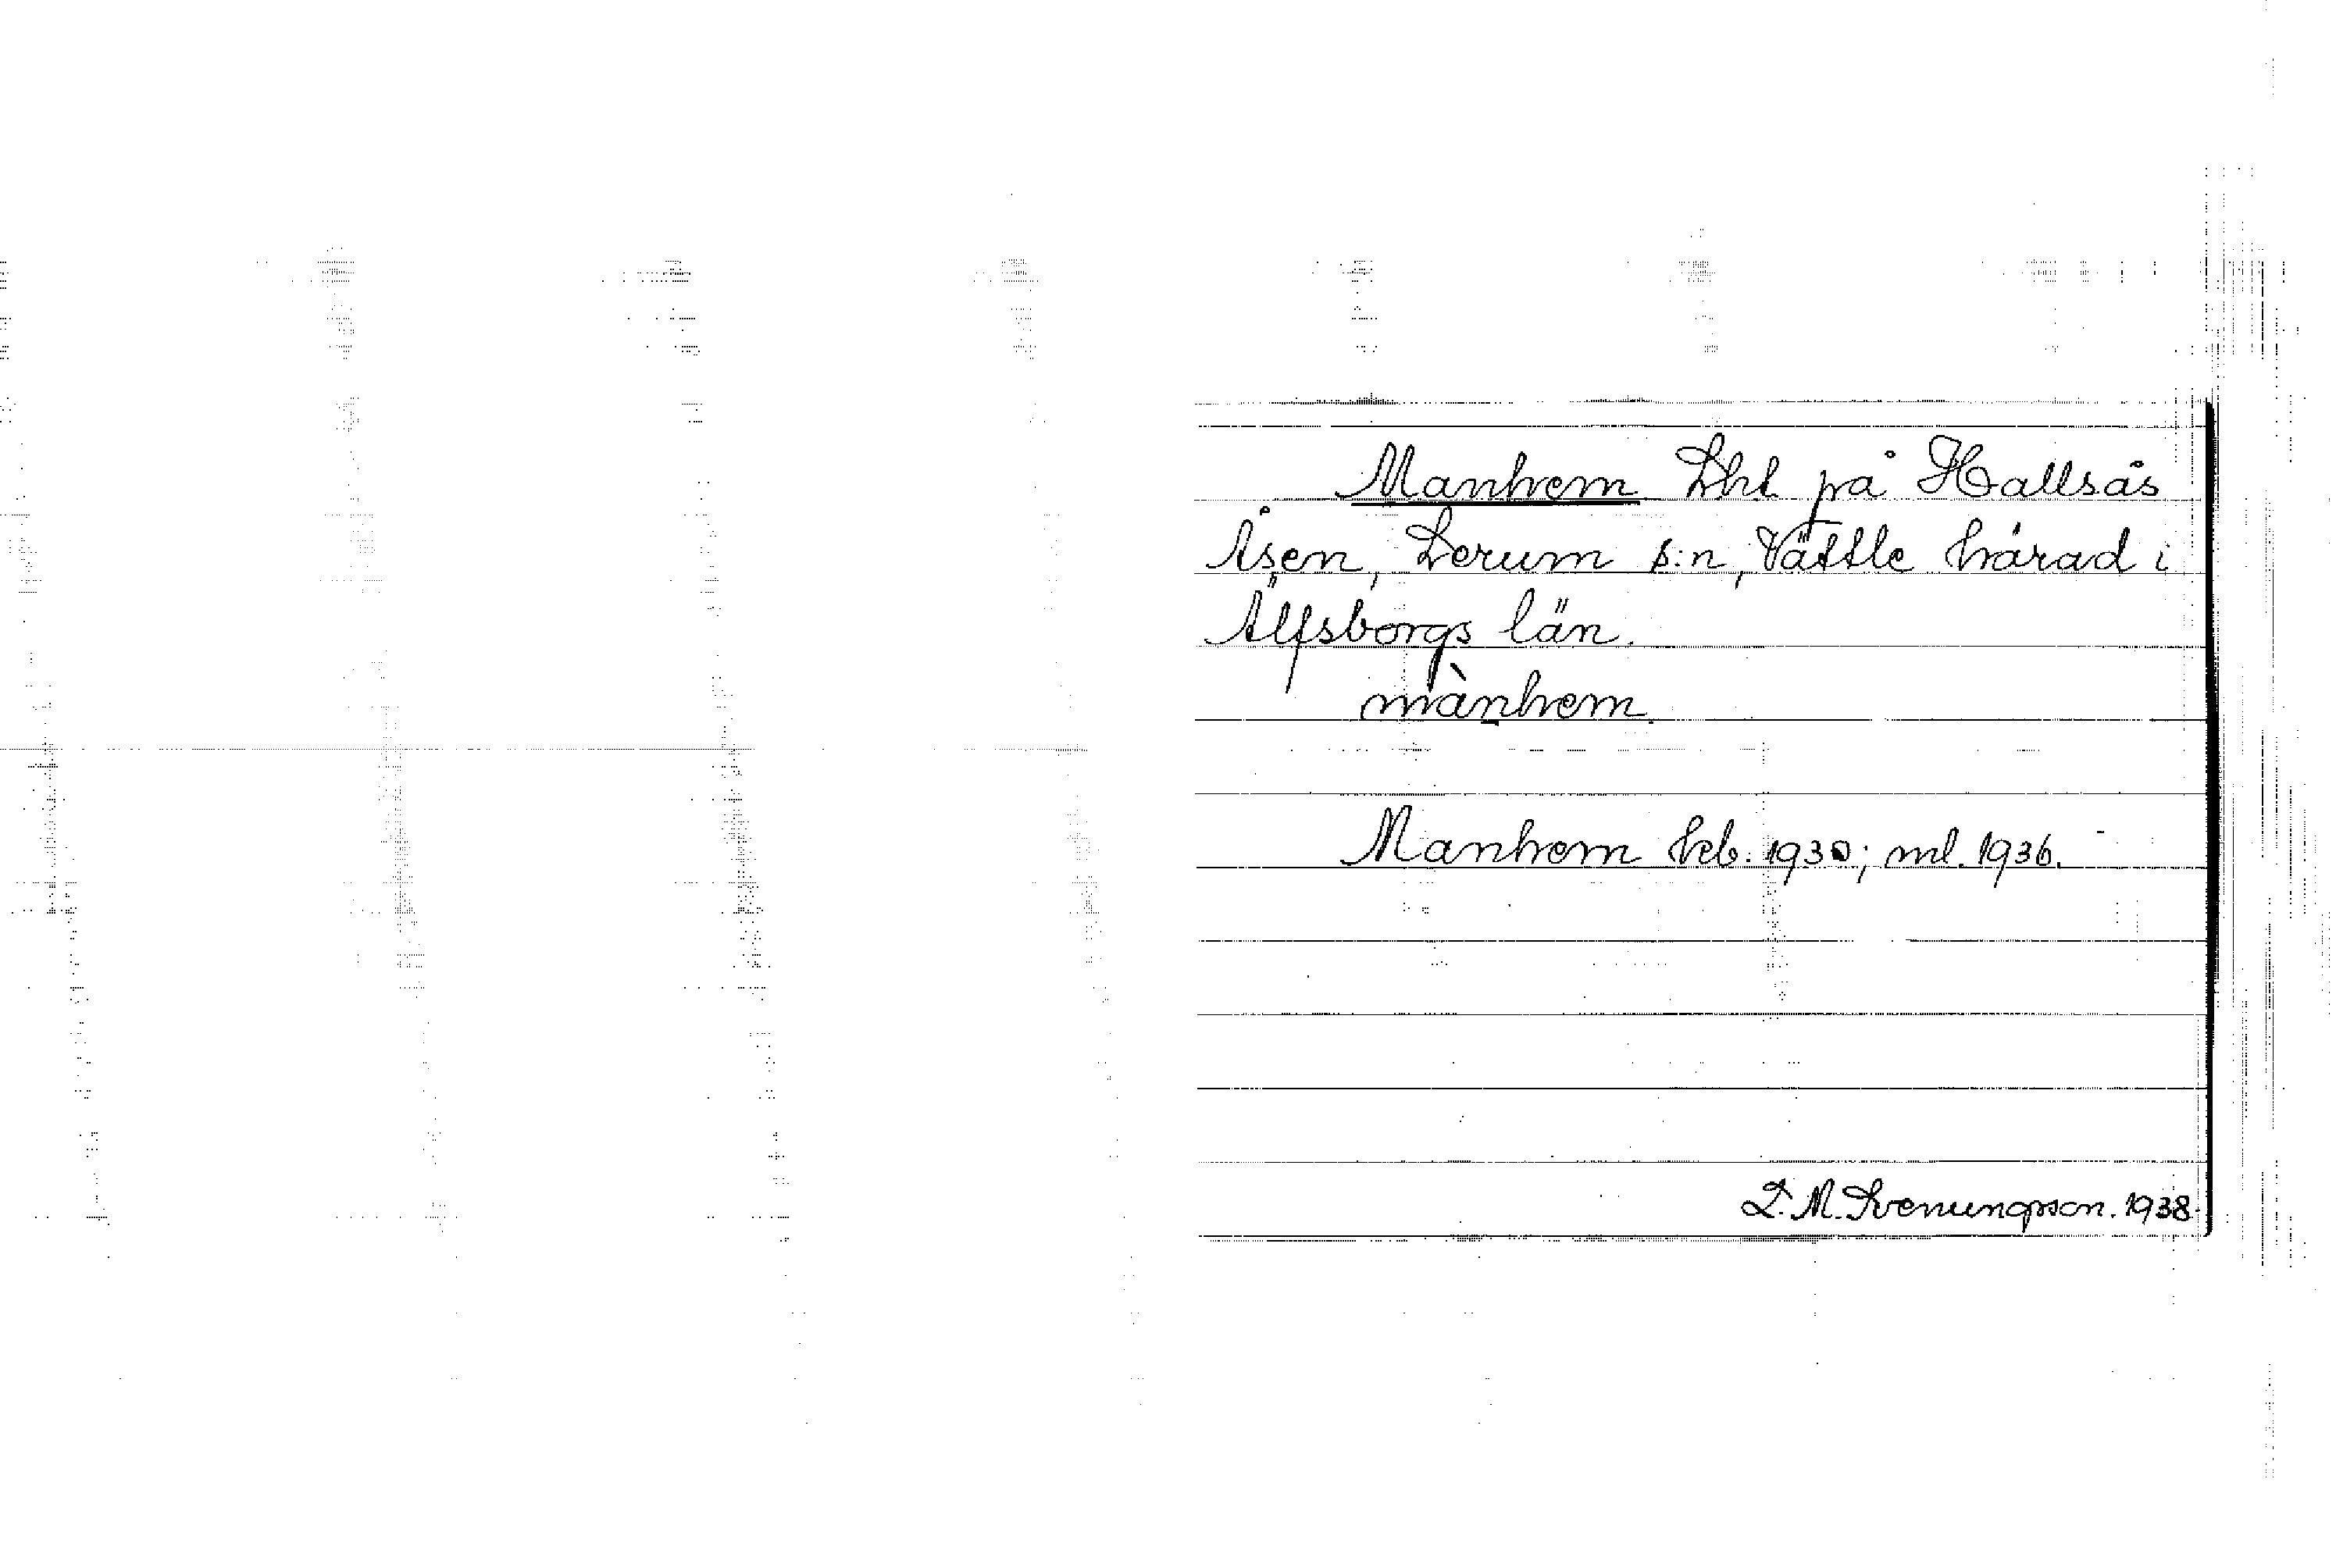 Manhem Lht på Hallsås
Åsen, Lerum s:n, Vättle härad i
Älfsborgs län.
mànhem.
Manhem kb. 1930; ml. 1936.
L. M. Svenungsson. 1938